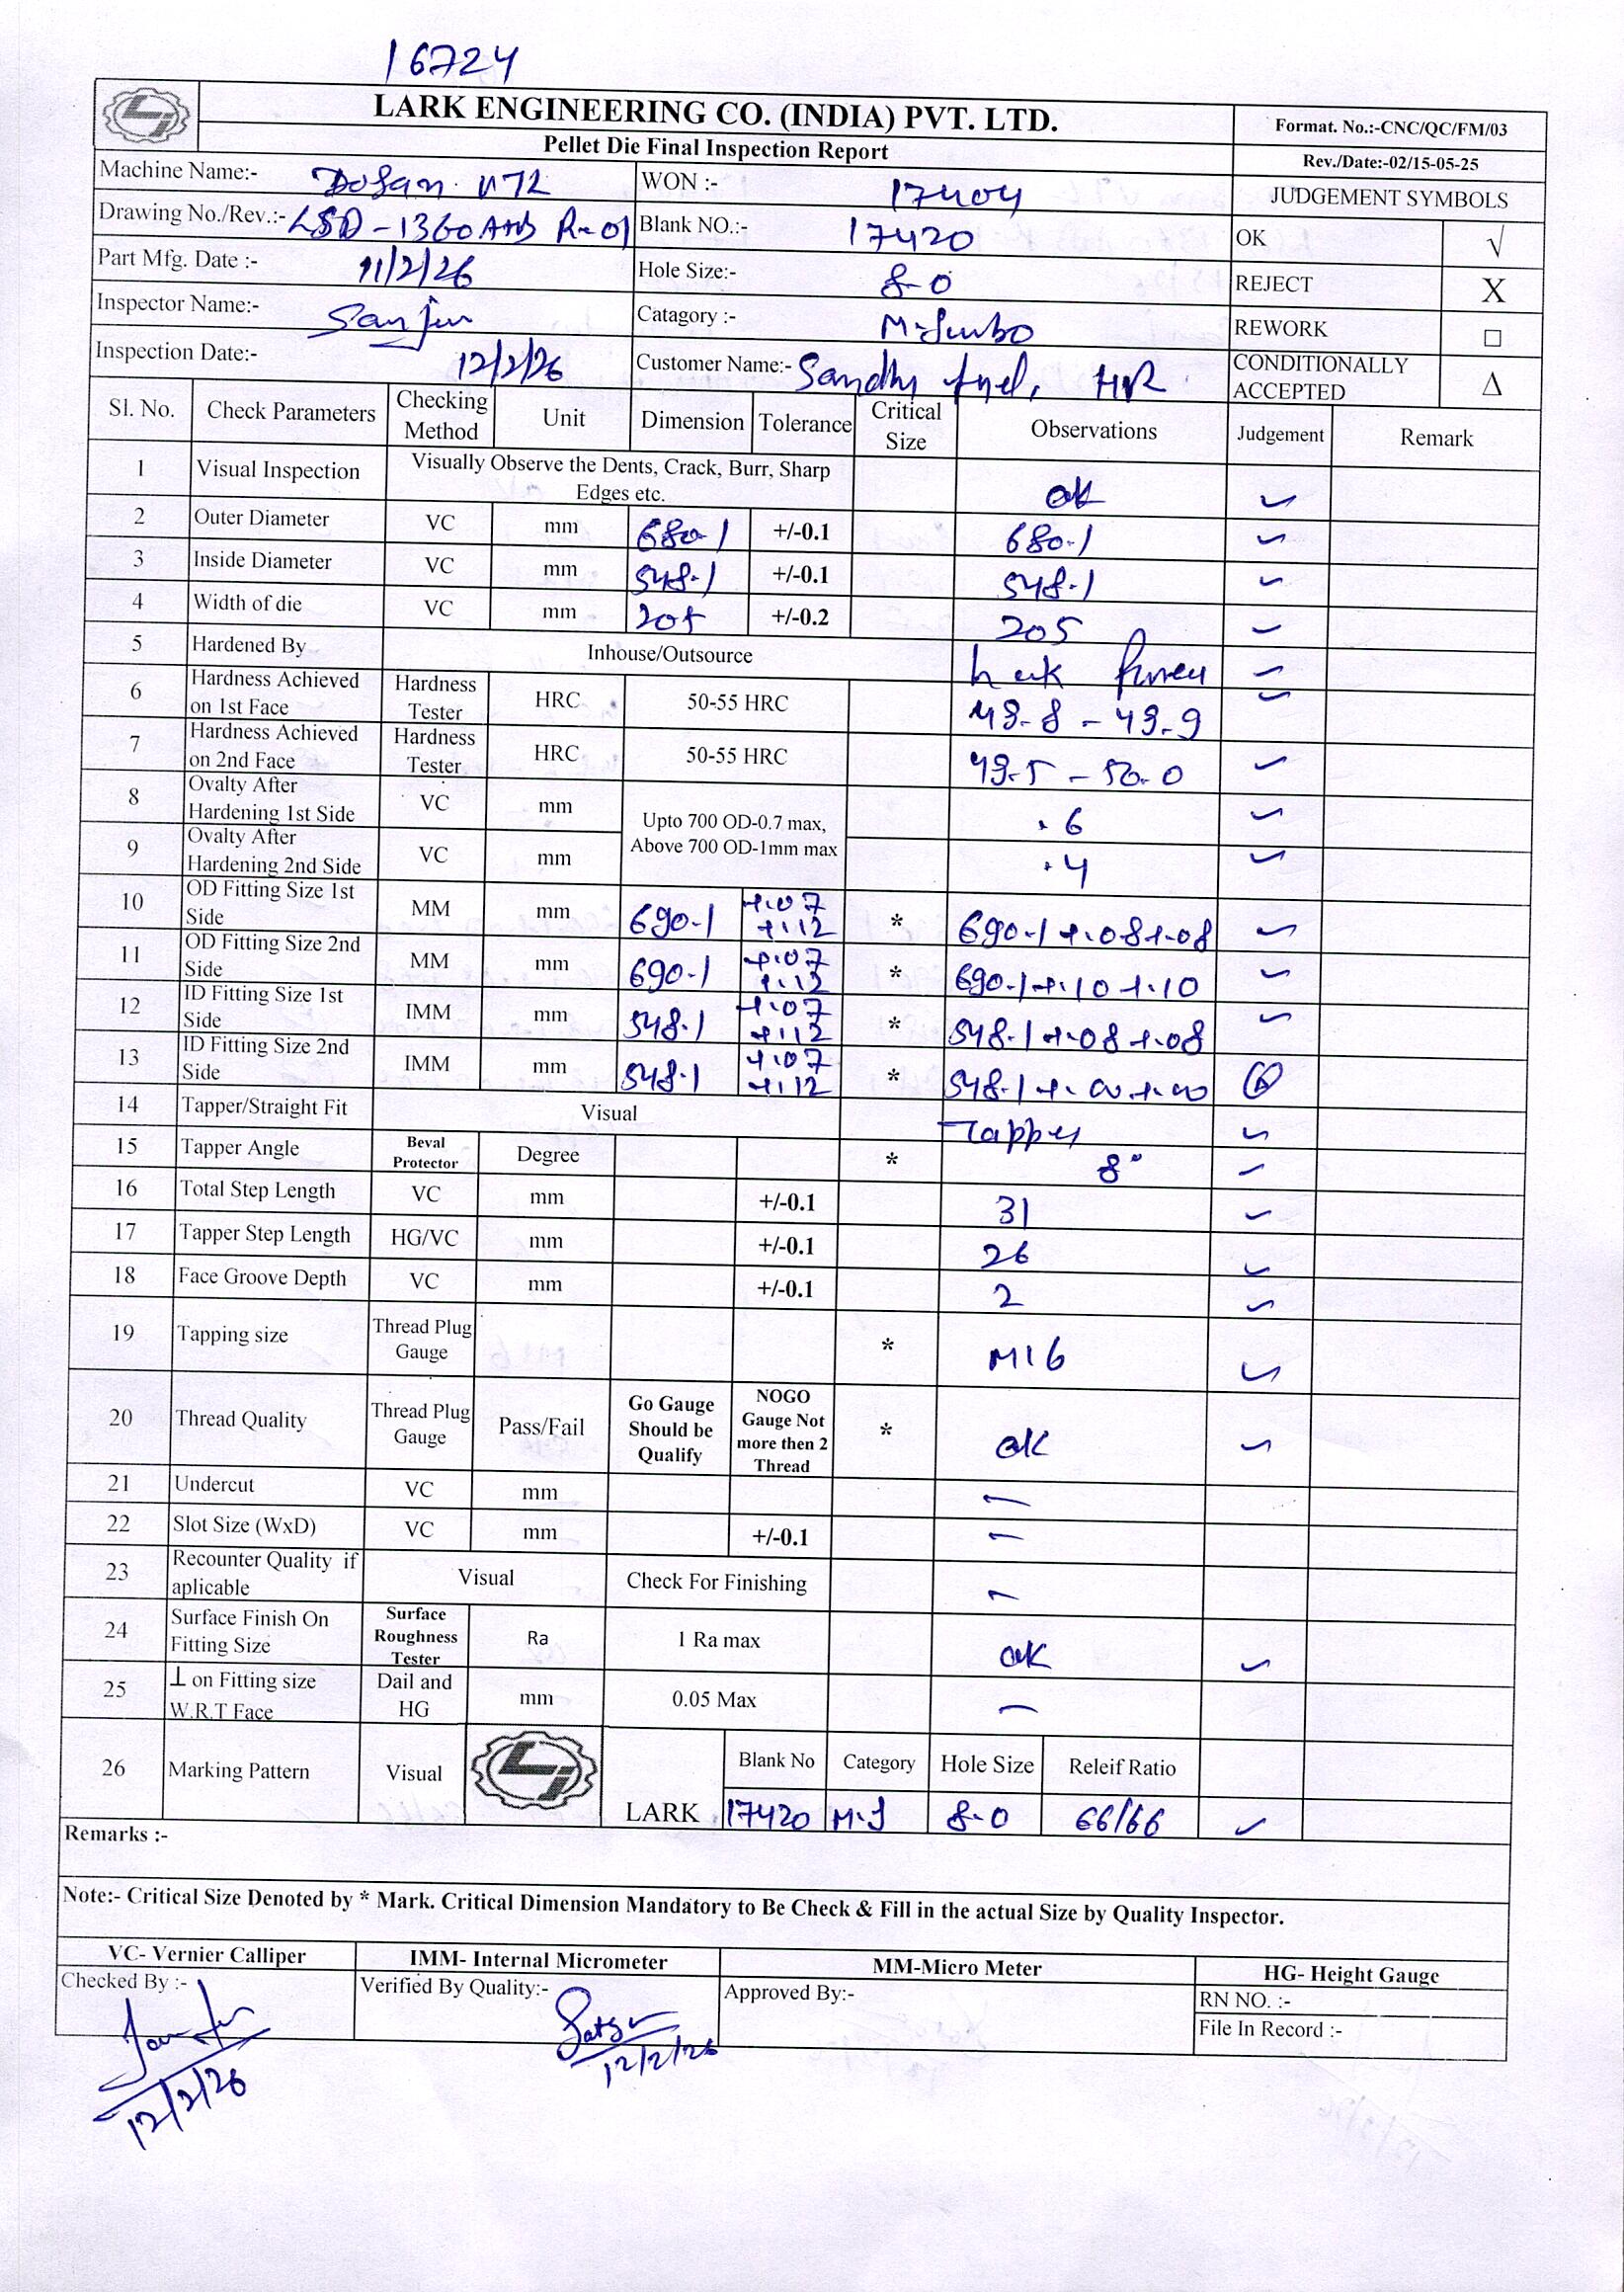 16724
LARK ENGINEERING CO. (INDIA) PVT. LTD.
Pellet Die Final Inspection Report
Format. No.:-CNC/QC/FM/03
Rev./Date:-02/15-05-25
Machine Name:- V72 WON :- 17404 JUDGEMENT SYMBOLS
Drawing No./Rev.:- LSD-1360 R-01 Blank NO.:- 17420 OK √
Part Mfg. Date :- 11/2/26 Hole Size:- 8-0 REJECT X
Inspector Name:- Catagory :- REWORK □
Inspection Date:- 12/2/26 Customer Name:- HR CONDITIONALLY ACCEPTED Δ
Sl. No. Check Parameters Checking Method Unit Dimension Tolerance Critical Size Observations Judgement Remark
1 Visual Inspection Visually Observe the Dents, Crack, Burr, Sharp Edges etc. ok ✓
2 Outer Diameter VC mm 680.1 +/-0.1 680.1 ✓
3 Inside Diameter VC mm 548.1 +/-0.1 548.1 ✓
4 Width of die VC mm 205 +/-0.2 205 ✓
5 Hardened By Inhouse/Outsource ✓
6 Hardness Achieved on 1st Face Hardness Tester HRC 50-55 HRC 49.8 - 49.9 ✓
7 Hardness Achieved on 2nd Face Hardness Tester HRC 50-55 HRC 49.5 - 50.0 ✓
8 Ovalty After Hardening 1st Side VC mm Upto 700 OD-0.7 max, Above 700 OD-1mm max .6 ✓
9 Ovalty After Hardening 2nd Side VC mm .4 ✓
10 OD Fitting Size 1st Side MM mm 690.1 +.07 +.12 * 690.1 +.08 +.08 ✓
11 OD Fitting Size 2nd Side MM mm 690.1 +.07 +.12 * 690.1 +.10 +.10 ✓
12 ID Fitting Size 1st Side IMM mm 548.1 +.07 +.12 * 548.1 +.08 +.08 ✓
13 ID Fitting Size 2nd Side IMM mm 548.1 +.07 +.12 * 548.1 +.00 +.00
14 Tapper/Straight Fit Visual Tapper ✓
15 Tapper Angle Beval Protector Degree * 8° ✓
16 Total Step Length VC mm +/-0.1 31 ✓
17 Tapper Step Length HG/VC mm +/-0.1 26 ✓
18 Face Groove Depth VC mm +/-0.1 2 ✓
19 Tapping size Thread Plug Gauge * M16 ✓
20 Thread Quality Thread Plug Gauge Pass/Fail Go Gauge Should be Qualify NOGO Gauge Not more then 2 Thread * ok ✓
21 Undercut VC mm –
22 Slot Size (WxD) VC mm +/-0.1 –
23 Recounter Quality if aplicable Visual Check For Finishing –
24 Surface Finish On Fitting Size Surface Roughness Tester Ra 1 Ra max ok ✓
25 ⊥ on Fitting size W.R.T Face Dail and HG mm 0.05 Max –
26 Marking Pattern Visual LARK Blank No Category Hole Size Releif Ratio
17420 M.J 8-0 66/66 ✓
Remarks :-
Note:- Critical Size Denoted by * Mark. Critical Dimension Mandatory to Be Check & Fill in the actual Size by Quality Inspector.
VC- Vernier Calliper IMM- Internal Micrometer MM-Micro Meter HG- Height Gauge
Checked By :- Verified By Quality:- Approved By:- RN NO. :-
File In Record :-
12/2/26
12/2/26